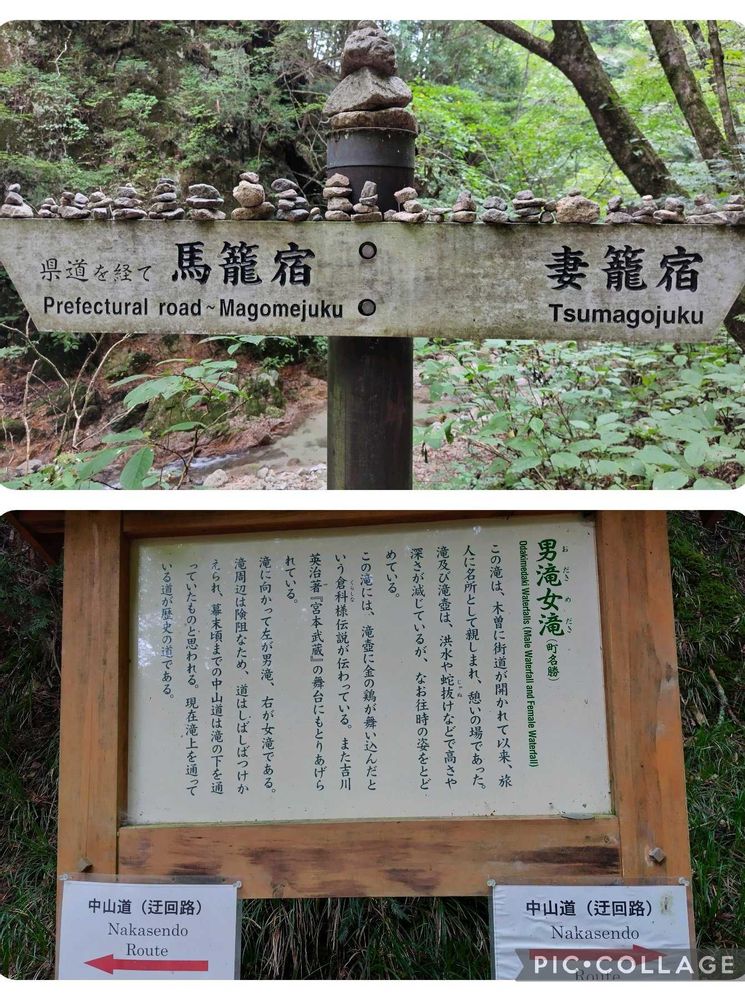 県道を経て 馬籠宿
Prefectural road ~ Magomejuku
妻籠宿
Tsumagojuku
男滝女滝(町名勝)
おだきめだき
Odakimedaki Waterfalls (Male Waterfall and Female Waterfall)
この滝は、木曽に街道が開かれて以来、旅
人に名所として親しまれ、憩いの場であった。
滝及び滝壺は、洪水や蛇抜けなどで高さや
じゃぬ
深さが減じているが、なお往時の姿をとど
めている。
この滝には、滝壺に金の鶏が舞い込んだと
いう倉科様伝説が伝わっている。また吉川
くらしな
英治著『宮本武蔵』の舞台にもとりあげら
れている。
滝に向かって左が男滝、右が女滝である。
滝周辺は険阻なため、道はしばしばつけか
えられ、幕末頃までの中山道は滝の下を通
っていたものと思われる。現在滝上を通って
いる道が歴史の道である。
中山道(迂回路)
Nakasendo
Route
中山道(迂回路)
Nakasendo
Route
PIC•COLLAGE